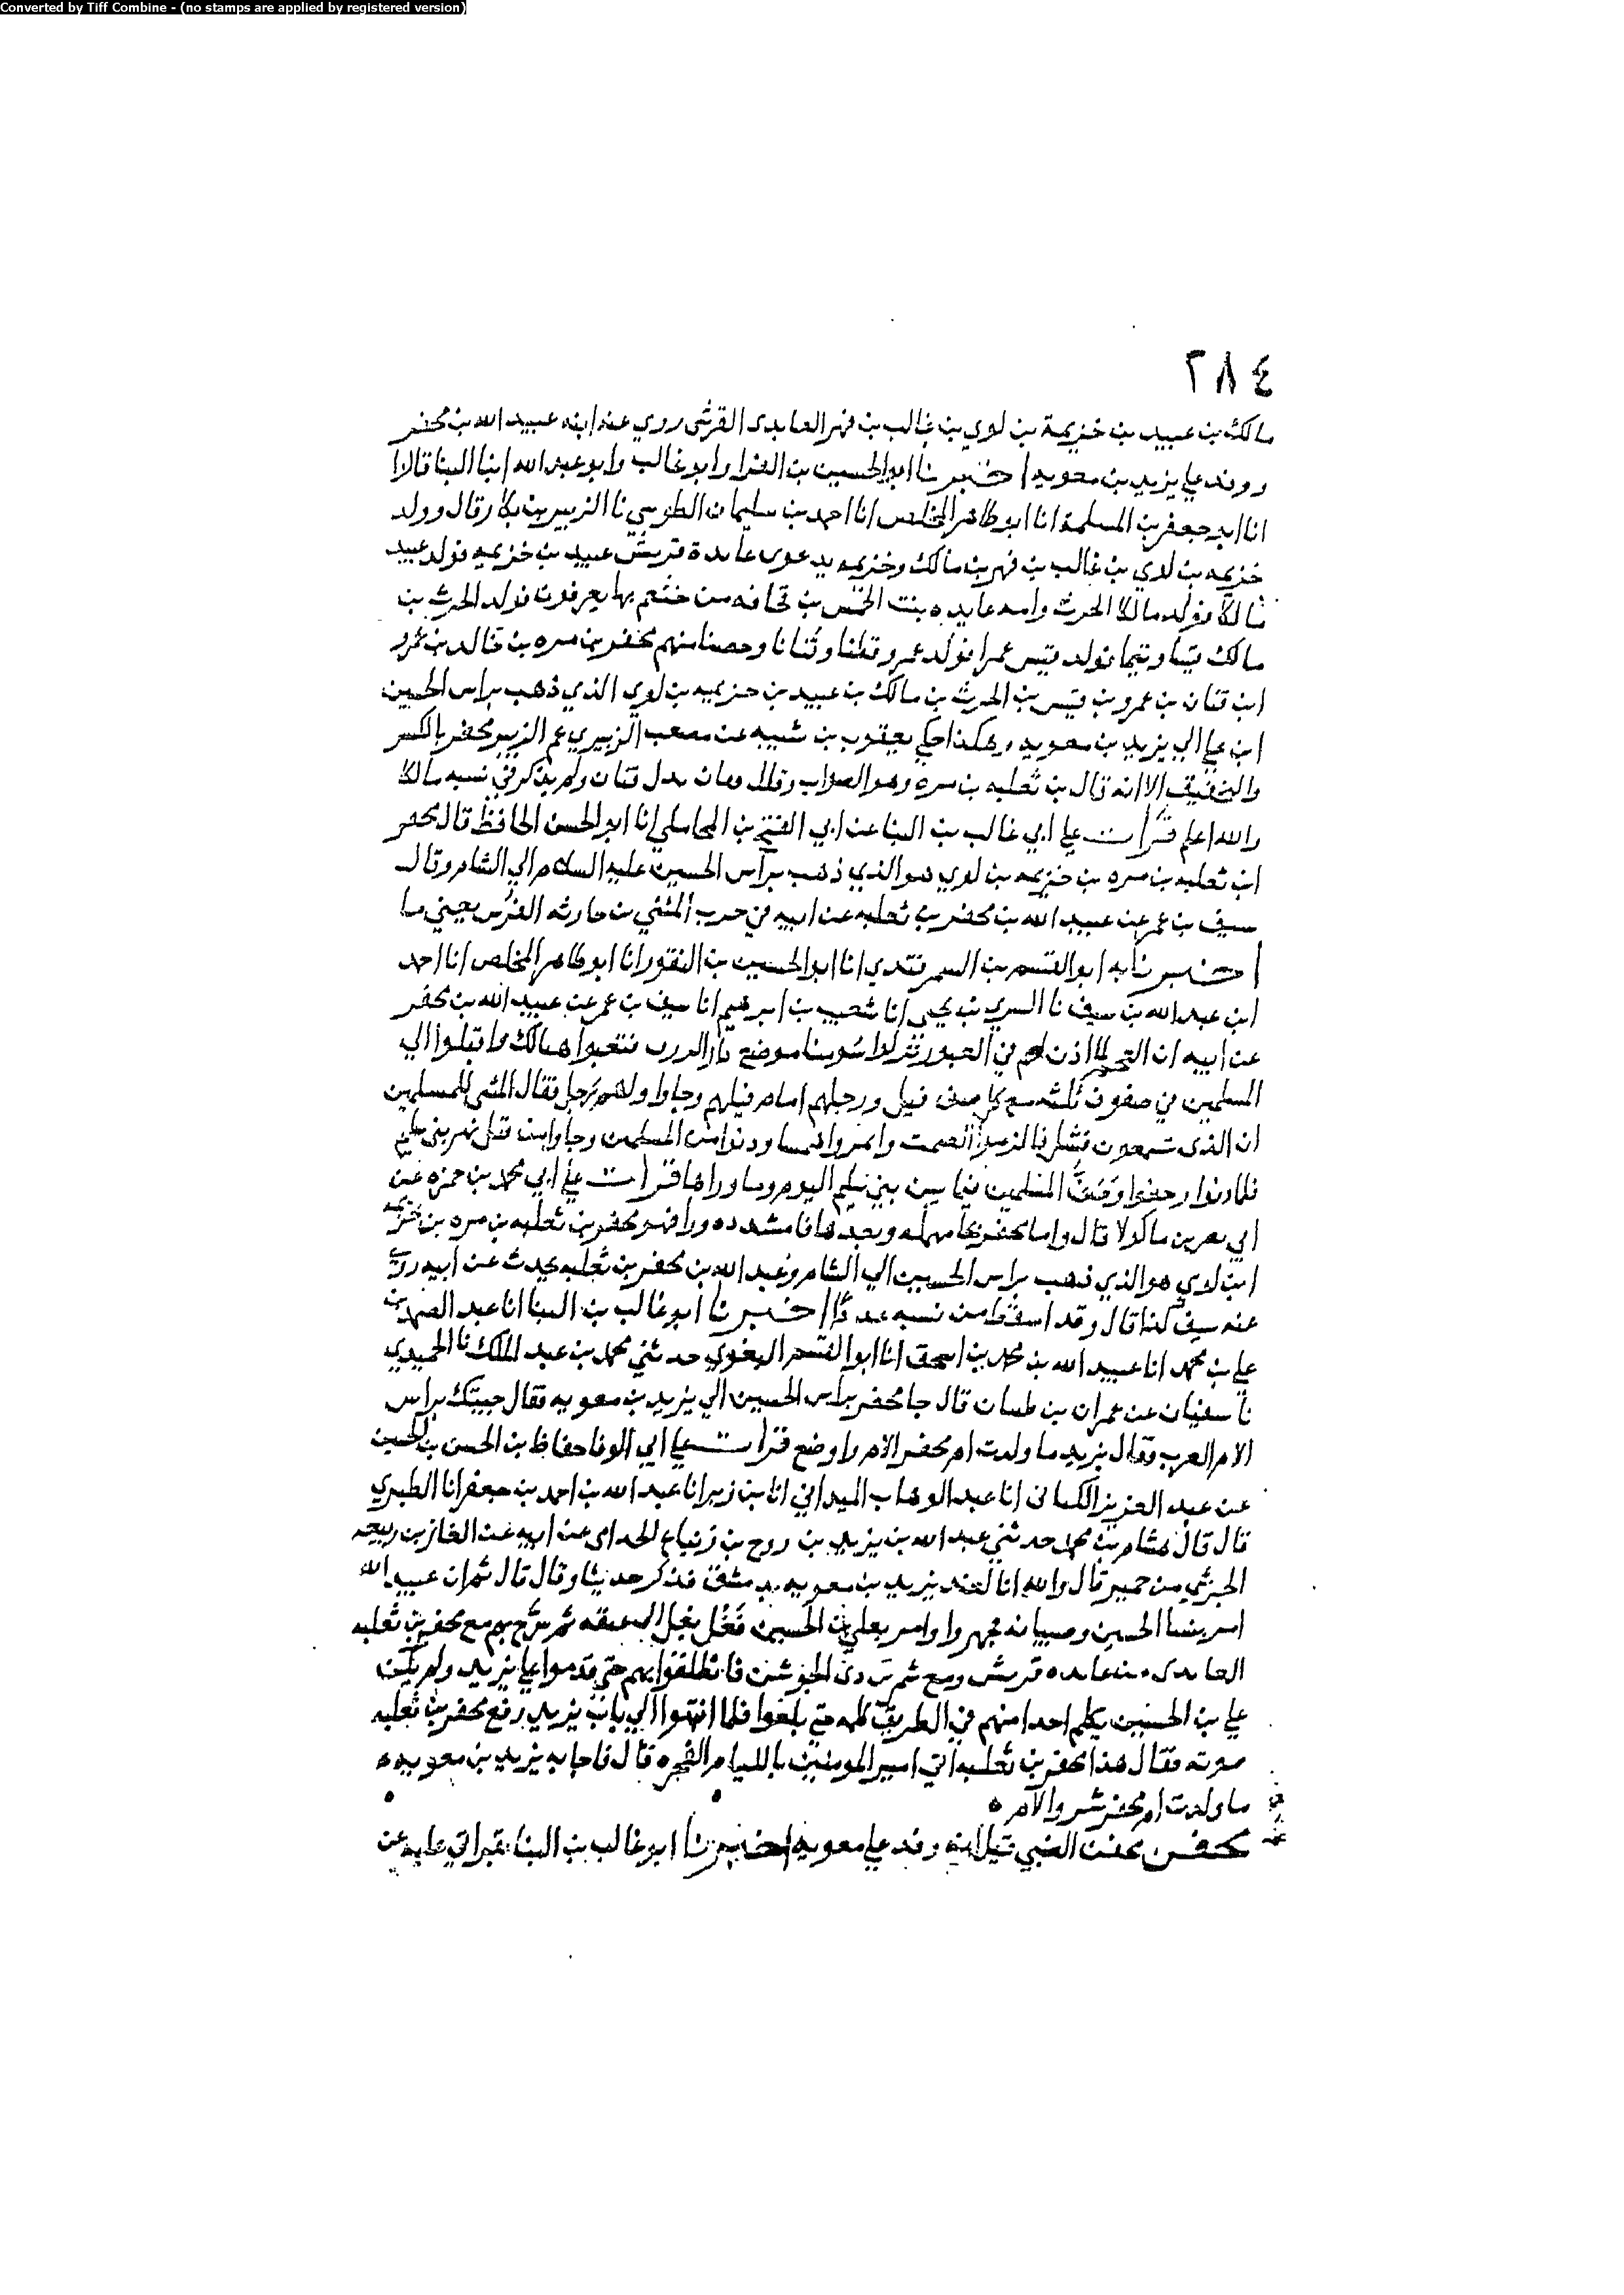 Converted by Tiff Combine - (no stamps are applied by registered version)
٢٨٤
مالك بن عبيد بن خزيمة بن لوي بن غالب بن فهر العايدى القرشى روي عنه ابنه عبيد الله بن محفر
ووفد علي يزيد بن معويه اخبرنا ابو الحسين بن الفرا وابو غالب وابو عبد الله ابنا البنا قالا
انا ابو جعفر بن المسلمة انا ابو طاهر المخلص انا احمد بن سليمان الطوسي نا الزبير بن بكار قال وولد
خزيمه بن لوي بن غالب بن فهر بن مالك وخزيمه يدعون عايدة قريش عبيد بن خزيمه فولد عبيد
مالكا فولد مالكا الحرث وامه عايده بنت الخمس بن قحافه من خثعم بها يعرفون فولد الحرث بن
مالك قيسا وتيما فولد قيس عمرا فولد عمرو قطنا وقنانا وحصنا منهم محفر بن مره بن خالد بن عمرو
ابن قنان بن عمرو بن قيس بن الحرث بن مالك بن عبيد بن خزيمه بن لوي الذي ذهب براس الحسين
ابن علي الي يزيد بن معويه وهكذا حكي يعقوب بن شيبه عن مصعب الزبيري عم الزبير محفر بالكسر
والتخفيف الا انه قال بن ثعلبه بن مره وهو الصواب وقال بدل قنان ولم يذكر في نسبه مالكا
والله اعلم قرات علي ابي غالب بن البنا عن ابي الفتح بن المحاملي انا ابو الحسن الحافظ قال محفر
ابن ثعلبه بن مره بن خزيمه بن لوي هو الذي ذهب براس الحسين عليه السلام الي الشام وقال
سيف بن عمر عن عبيد الله بن محفر بن ثعلبه عن ابيه في حرب المثني بن حارثه الفرس يعني ما
اخبرنا به ابو القسم بن السمرقندي انا ابو الحسين بن النقور انا ابو طاهر المخلص انا احمد
ابن عبد الله بن سيف نا السري بن يحيى انا شعيب بن ابرهيم انا سيف بن عمر عن عبيد الله بن محفر
عن ابيه ان العجم لما اذن لهم في العبور نزلوا شوميا موضع دار الرزق فتعبوا هنالك فاقبلوا الي
المسلمين في صفوف ثلثه مع كل صف فيل ورجلهم امام فيلهم وجاوا ولهم زجل فقال المثنى للمسلمين
ان الذى تسمعون فشل فالزموا الصمت وايتمروا همسا ودنوا من المسلمين وجاوا من قبل نهر بني سليم
فلما دنوا زحفوا وصف المسلمين فيما بين بني سليم اليوم وما وراها قرات علي ابي محمد بن حمزه عن
ابي نصر بن ماكولا قال واما محفر بحا مهمله وبعدها فا مشدده ورا فهو محفر بن ثعلبه بن مره بن خزيمه
ابن لوي هو الذي ذهب براس الحسين الي الشام وعبيد الله بن محفر بن ثعلبه يحدث عن ابيه روي
عنه سيف كذا قال وقد اسقط من نسبه عددا اخبرنا ابو غالب بن البنا انا عبد الصمد بن
علي بن محمد انا عبيد الله بن محمد بن اسحق انا ابو القسم البغوي حدثني محمد بن عبد الملك نا الحميدي
نا سفيان عن عمران بن ظبيان قال جا محفر براس الحسين الي يزيد بن معويه فقال جيتك براس
الام العرب فقال يزيد ما ولدت ام محفر الام واوضع قرات علي ابي الوفا حفاظ بن الحسن بن الحسين
عن عبد العزيز الكتانى انا عبد الوهاب الميداني انا بن زبر انا عبد الله بن احمد بن جعفر انا الطبري
قال قال هشام بن محمد حدثني عبد الله بن يزيد بن روح بن زنباع الجذامى عن ابيه عن الغاز بن ربيعه
الجرشي من حمير قال والله انا لعند يزيد بن معويه بدمشق فذكر حديثا وقال قال ثم ان عبيد الله
امر بنسا الحسين وصبيانه فجهزوا وامر بعلي بن الحسين فغل بغل الى عنقه ثم سرح بهم مع محفر بن ثعلبه
العايدى من عايده قريش ومع شمر بن ذى الجوشن فانطلقوا بهم حتي قدموا علي يزيد ولم يكن
علي بن الحسين يكلم احدا منهم في الطريق كلمه حتي بلغوا فلما انتهوا الي باب يزيد رفع محفر بن ثعلبه
صوته فقال هذا محفر بن ثعلبه اتي امير المومنين باللئام الفجره قال فاجابه يزيد بن معويه
ما ولدت ام محفر شر والام
محفن بن الضبي قيل انه وفد علي معويه اخبرنا ابو غالب بن البنا بقراتي عليه عن